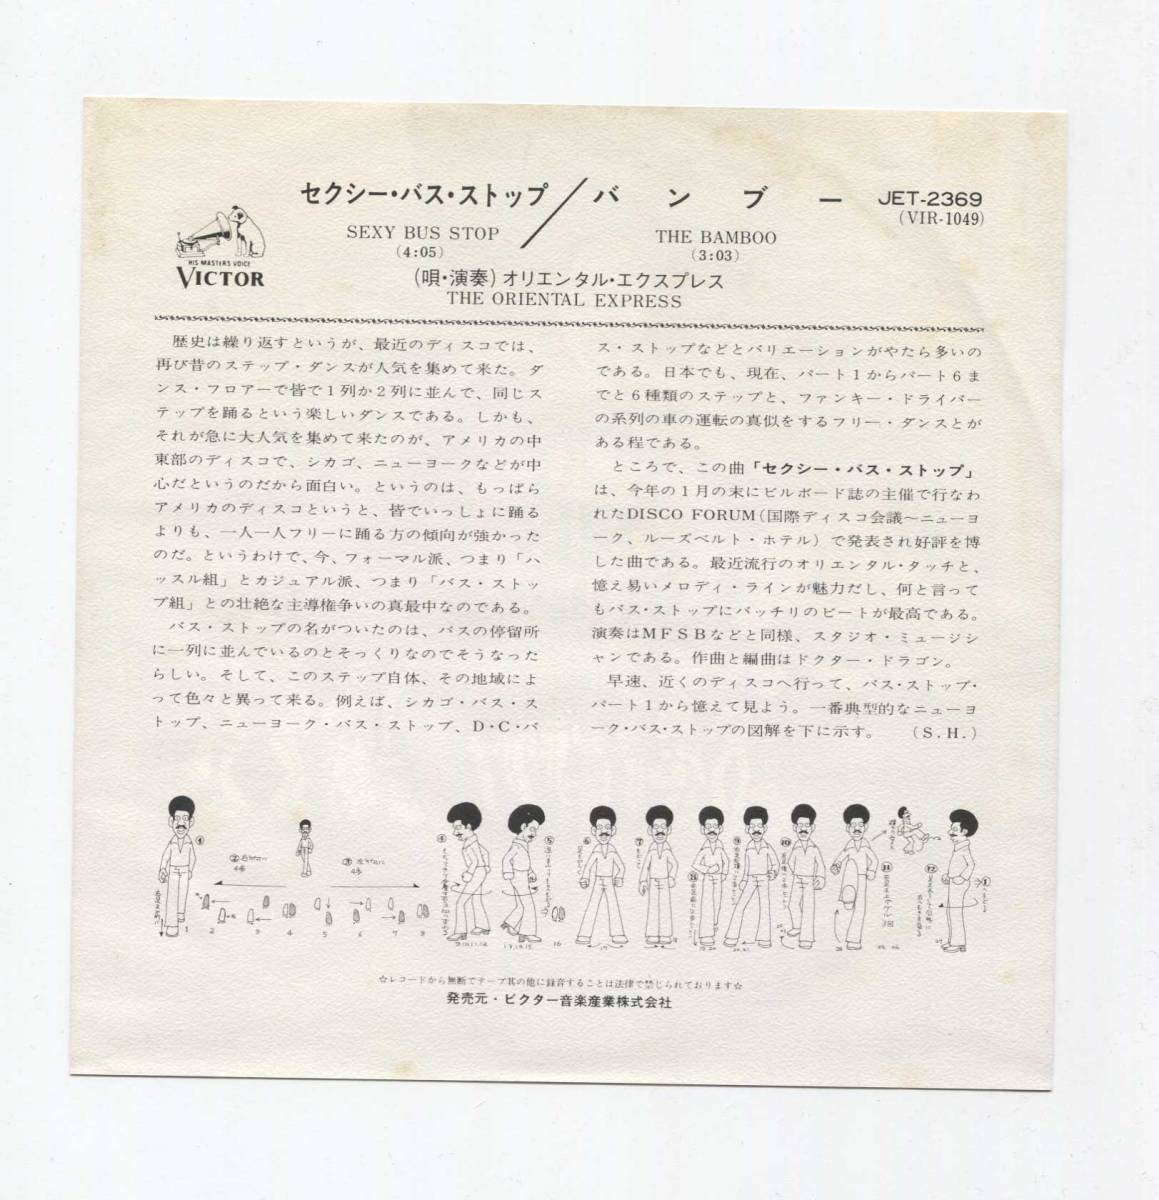 セクシー・バス・ストップ／バンブー
JET-2369
(VIR-1049)
SEXY BUS STOP
(4:05)
THE BAMBOO
(3:03)
HIS MASTER'S VOICE
VICTOR
(唄・演奏)オリエンタル・エクスプレス
THE ORIENTAL EXPRESS
歴史は繰り返すというが、最近のディスコでは、
再び昔のステップ・ダンスが人気を集めて来た。ダ
ンス・フロアーで皆で1列か2列に並んで、同じス
テップを踊るという楽しいダンスである。しかも、
それが急に大人気を集めて来たのが、アメリカの中
東部のディスコで、シカゴ、ニューヨークなどが中
心だというのだから面白い。というのは、もっぱら
アメリカのディスコというと、皆でいっしょに踊る
よりも、一人一人フリーに踊る方の傾向が強かった
のだ。というわけで、今、フォーマル派、つまり「ハ
ッスル組」とカジュアル派、つまり「バス・ストッ
プ組」との壮絶な主導権争いの真最中なのである。
バス・ストップの名がついたのは、バスの停留所
に一列に並んでいるのとそっくりなのでそうなった
らしい。そして、このステップ自体、その地域によ
って色々と異って来る。例えば、シカゴ・バス・ス
トップ、ニューヨーク・バス・ストップ、D・C・バ
ス・ストップなどとバリエーションがやたら多いの
である。日本でも、現在、パート1からパート6ま
でと6種類のステップと、ファンキー・ドライバー
の系列の車の運転の真似をするフリー・ダンスとが
ある程である。
ところで、この曲「セクシー・バス・ストップ」
は、今年の1月の末にビルボード誌の主催で行なわ
れたDISCO FORUM(国際ディスコ会議〜ニューヨ
ーク、ルーズベルト・ホテル)で発表され好評を博
した曲である。最近流行のオリエンタル・タッチと、
憶え易いメロディ・ラインが魅力だし、何と言って
もバス・ストップにバッチリのビートが最高である。
演奏はMFSBなどと同様、スタジオ・ミュージシ
ャンである。作曲と編曲はドクター・ドラゴン。
早速、近くのディスコへ行って、バス・ストップ・
パート1から憶えて見よう。一番典型的なニューヨ
ーク・バス・ストップの図解を下に示す。 (S.H.)
① ② ③ ④ ⑤ ⑥ ⑦ ⑧ ⑨ ⑩ ⑪ ⑫ ①
1 2 3 4 5 6 7 8
16
☆レコードから無断でテープ其の他に録音することは法律で禁じられております☆
発売元・ビクター音楽産業株式会社